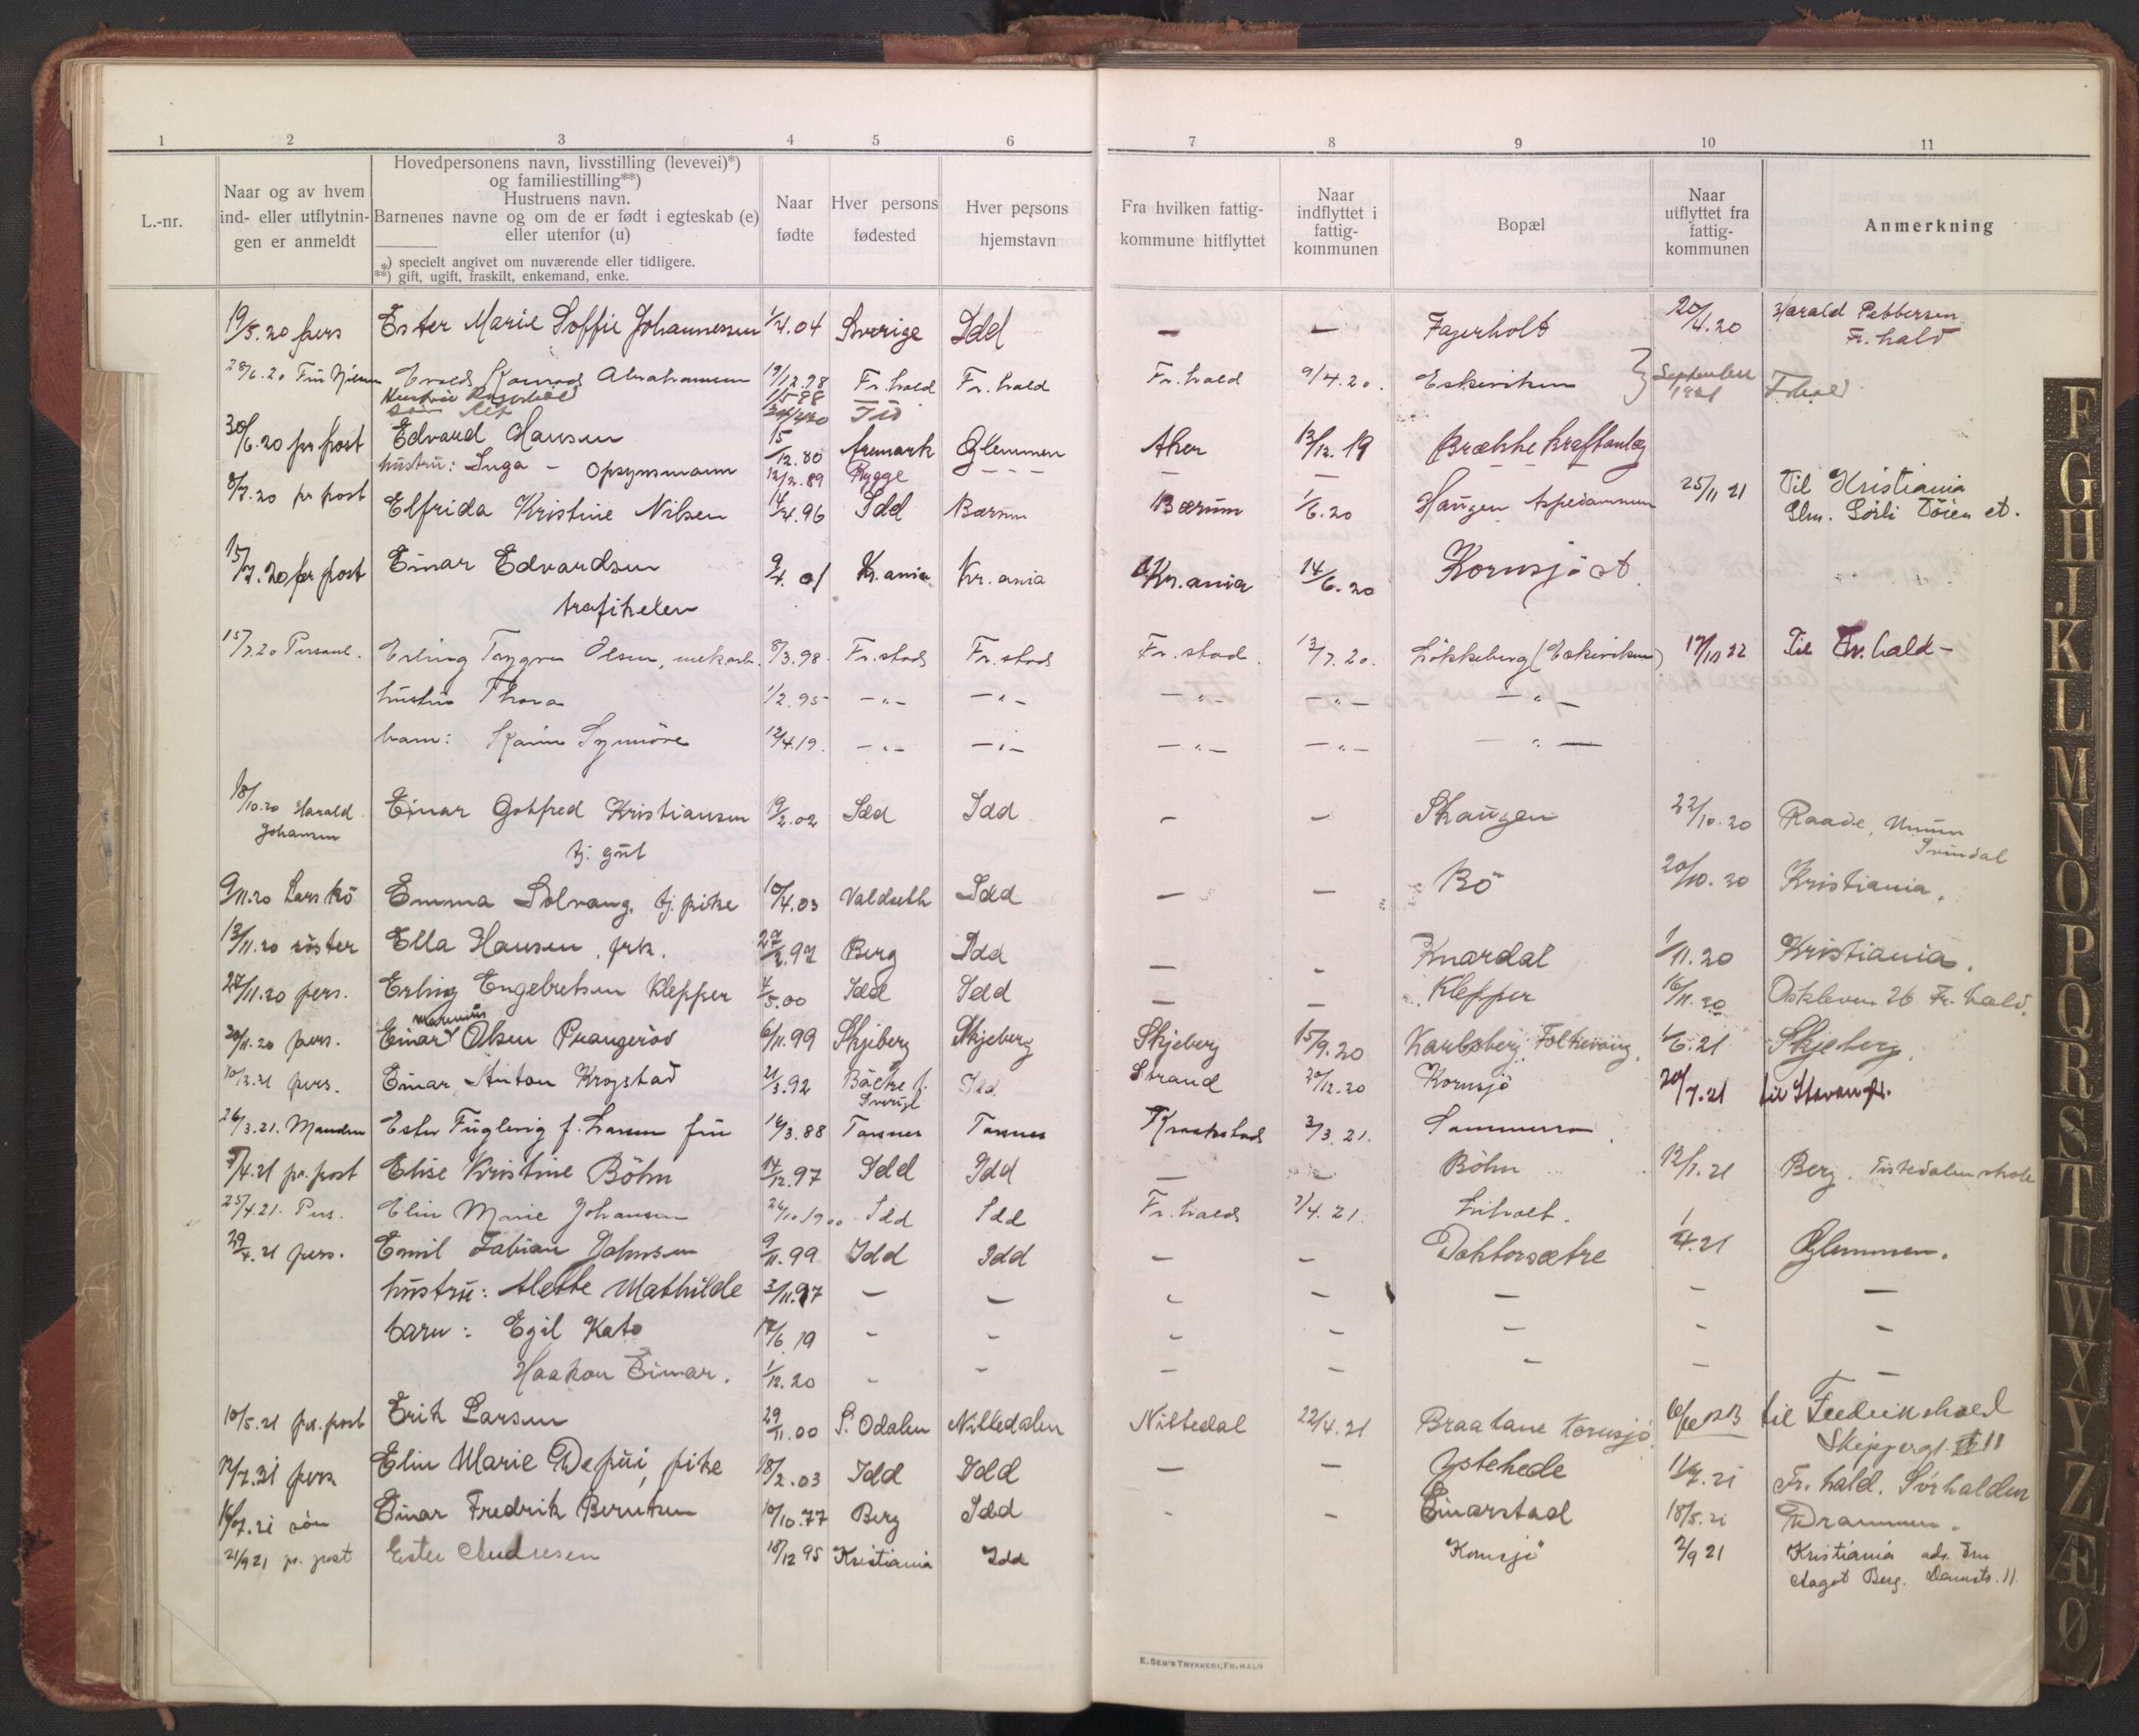 1 2 3 4 5 6 7 8 9 10 11
L.-nr.
Naar og av hvem
ind- eller utflytnin-
gen er anmeldt
Hovedpersonens navn, livsstilling (levevei)*)
og familiestilling**)
Hustruens navn.
Barnenes navne og om de er født i egteskab (e)
eller utenfor (u)
*) specielt angivet om nuværende eller tidligere.
**) gift, ugift, fraskilt, enkemand, enke.
Naar
fødte
Hver persons
fødested
Hver persons
hjemstavn
Fra hvilken fattig-
kommune hitflyttet
Naar
indflyttet i
fattig-
kommunen
Bopæl
Naar
utflyttet fra
fattig-
kommunen
Anmerkning
19/5.20 pers Ester Marie Soffie Johannessen 1/4.04 Sverige Idd — — Fagerholt 20/4.20 Harald Pettersen
Fr. hald
28/6.20 Fru Nilsen Konrad Abrahamsen 19/12.98 Fr. hald Fr. hald Fr. hald 9/4.20. Eskeviken } September Fr hald
Hustru 1921
søn
30/6.20 pr post Edvard Hansen 15/12.80 Aremark Glemmen Aker 13/12.19 Brække kraftanlæg
hustru: Inga – opsynsmann 12/2.89 Rygge – – – — —
8/7.20 pr post Elfrida Kristine Nilsen 14/4.96 Idd Bærum Bærum 1/6.20 Haugen Aspedammen 25/11 21 Til Kristiania
Sörli Töien st.
15/7.20 pr post Einar Edvardsen 9/4.01 Kr.ania Kr.ania Kr.ania 14/6.20 Kornsjö st
trafikelev
15/7.20 Personl. Erling Trygve Olsen, mek arb. 8/3.98. Fr. stad Fr. stad Fr. stad 13/7.20. Lökkeberg (Eskeviken) 17/10 22 Til Fr. hald –
hustru Thora 1/2.95 –"– –"– –"– –"– –"–
barn: Karin Synnöve 12/4.19. –"– –"– –"– –"– –"–
18/10.20 Harald Einar Gotfred Kristiansen 19/2.02 Idd Idd – – Skaugen 22/10.20 Raade,
Johansen tj. gut Svindal
9/11.20 Lars Bö Emma Solvang, tj. pike 10/4.03 Valdseth Idd — — Bö 20/10.20 Kristiania.
13/11.20 söster Ella Hansen, frk. 27/2.97 Berg Idd — – Knardal 1/11.20 Kristiania.
27/11.20 pers. Erling Engebretsen Klepper 4/5.00 Idd Idd — — Klepper 16/11.20 Oskleven 26 Fr. hald.
Marenius
30/11.20 pers. Einar Olsen Prangeröd 6/11.99 Skjeberg Skjeberg Skjeberg 15/9.20 Karlsberg, Folkevang. 1/6.21 Skjeberg.
10/2.21 pers. Einar Anton Krogstad 21/3.92 Bäcke f. Idd. Strand 20/12.20 Kornsjö 20/7.21 til Stavang.
Sverige
26/3.21. Manden Ester Fugleng f. Larsen fru 14/3.88 Torsnes Torsnes Kraakstad 3/3.21.
7/4.21 pr. post Elise Kristine Böhn 14/12.97 Idd Idd — – Böhn 12/1.21 Berg. Tistedalen skole
25/4.21. Pers. Elin Marie Johansen 26/10 1900 Idd Idd Fr. hald 7/4.21. Liholt.
29/4.21 pers. Emil Fabian Johnsen 9/11.99 Idd Idd – – Doktorsætre 1/4.21 Glemmen.
hustru: Alette Mathilde 3/11.97 – – – – – – –
barn: Egil Kato 17/6 19 – – – – – – –
Haakon Einar. 1/12.20 – – – – – – –
10/5.21 pr. post Erik Larsen 29/11.00 S. Odalen Nittedalen Nittedal 22/4.21 Braatane Kornsjö til Fredrikshald
12/7.21 pers Elin Marie Depui, pike 18/2.03 Idd Idd — – Ystehede 11/7.21 Fr. hald. Sörhalden
16/7.21 sön Einar Fredrik Berntsen 10/10.77 Berg Idd – – Einarstad 18/5.21 Drammen.
21/9 21 pr. post Ester Andresen 18/12 95 Kristiania Idd Kornsjö 2/9 21 Kristiania adr. Fru
Aagot Berg. Damstr. 11.
E. SEM'S TRYKKERI, FR.HALD
F
G
H
J
K
L
M
N
O
P
Q
R
S
T
U
W
X
Y
Z
Æ
Ø